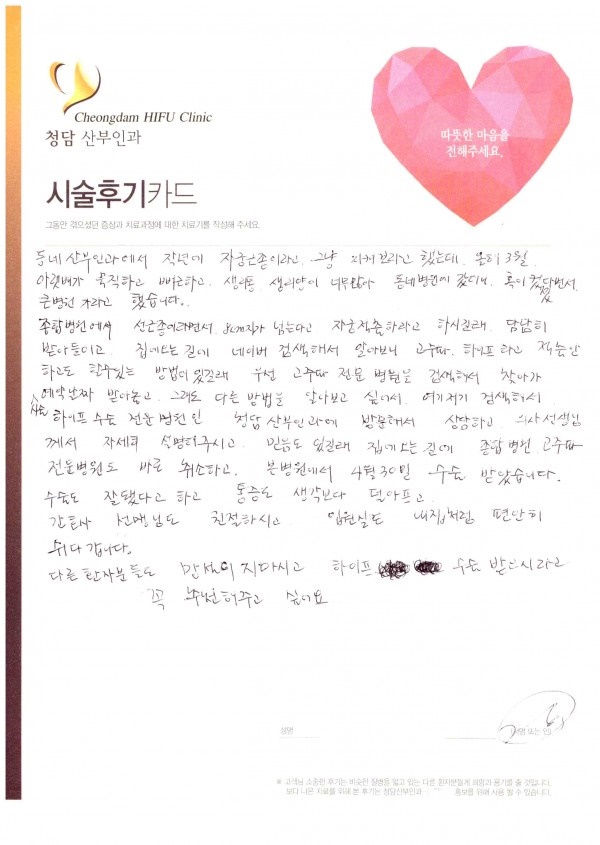 Cheongdam HIFU Clinic
청담 산부인과
따뜻한 마음을
전해주세요.
시술후기카드
그동안 겪으셨던 증상과 치료과정에 대한 치료기를 작성해 주세요.
동네 산부인과에서 작년에 자궁근종이라고. 그냥 지켜보라고 했는데. 올해 3월.
아랫배가 묵직하고 뻐근하고. 생리통 생리양이 너무많아 동네병원에 갔더니. 혹이 컸다면서.
큰병원 가라고 했습니다.
종합병원에서 선근증이라면서. 8cm지가 넘는다고 자궁적출하라고 하시길래. 담담히
받아들이고. 집에오는길에 네이버 검색해서 알아보니 고주파. 하이프라고 적출안
하고도 할수있는 방법이 있길래 우선 고주파 전문 병원을 검색해서 찾아가
예약날짜 받아놓고. 그래도 다른 방법을 알아보고 싶어서. 여기저기 검색해서.
하이프 수술 전문 병원인 청담산부인과에 방문해서 상담하고 의사선생님
께서 자세히 설명해주시고. 믿음도 있길래 집에오는길에 종합병원 고주파
전문병원도 바로 취소하고. 본병원에서 4월 30일 수술 받았습니다.
수술도 잘됐다고 하고 통증도 생각보다 덜아프고.
간호사 선생님도 친절하시고. 입원실도 내집처럼 편안히
쉬다 갑니다.
다른 환자분들도 망설이지마시고 하이프 수술 받으시라고
꼭 추천해주고 싶어요
성명
(서명 또는 인)
※ 고객님 소중한 후기는 비슷한 질병을 앓고 있는 다른 환자분들께 희망과 용기를 줄 것입니다.
보다 나은 치료를 위해 본 후기는 청담산부인과 홍보를 위해 사용 될 수 있습니다.